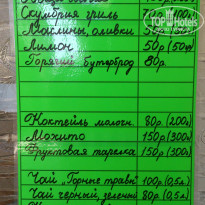 TopHotels
Скумбрия гриль
Маслины, оливки
Лимон 50р (50г)
Горячий бутерброд 80р.
Коктейль молочн. 80р. (200)
Мохито 150р (300)
Фруктовая тарелка 150р (300)
Чай "Горные травы" 100р (0,5л)
Чай черный, зелёный 80р (0,5л)